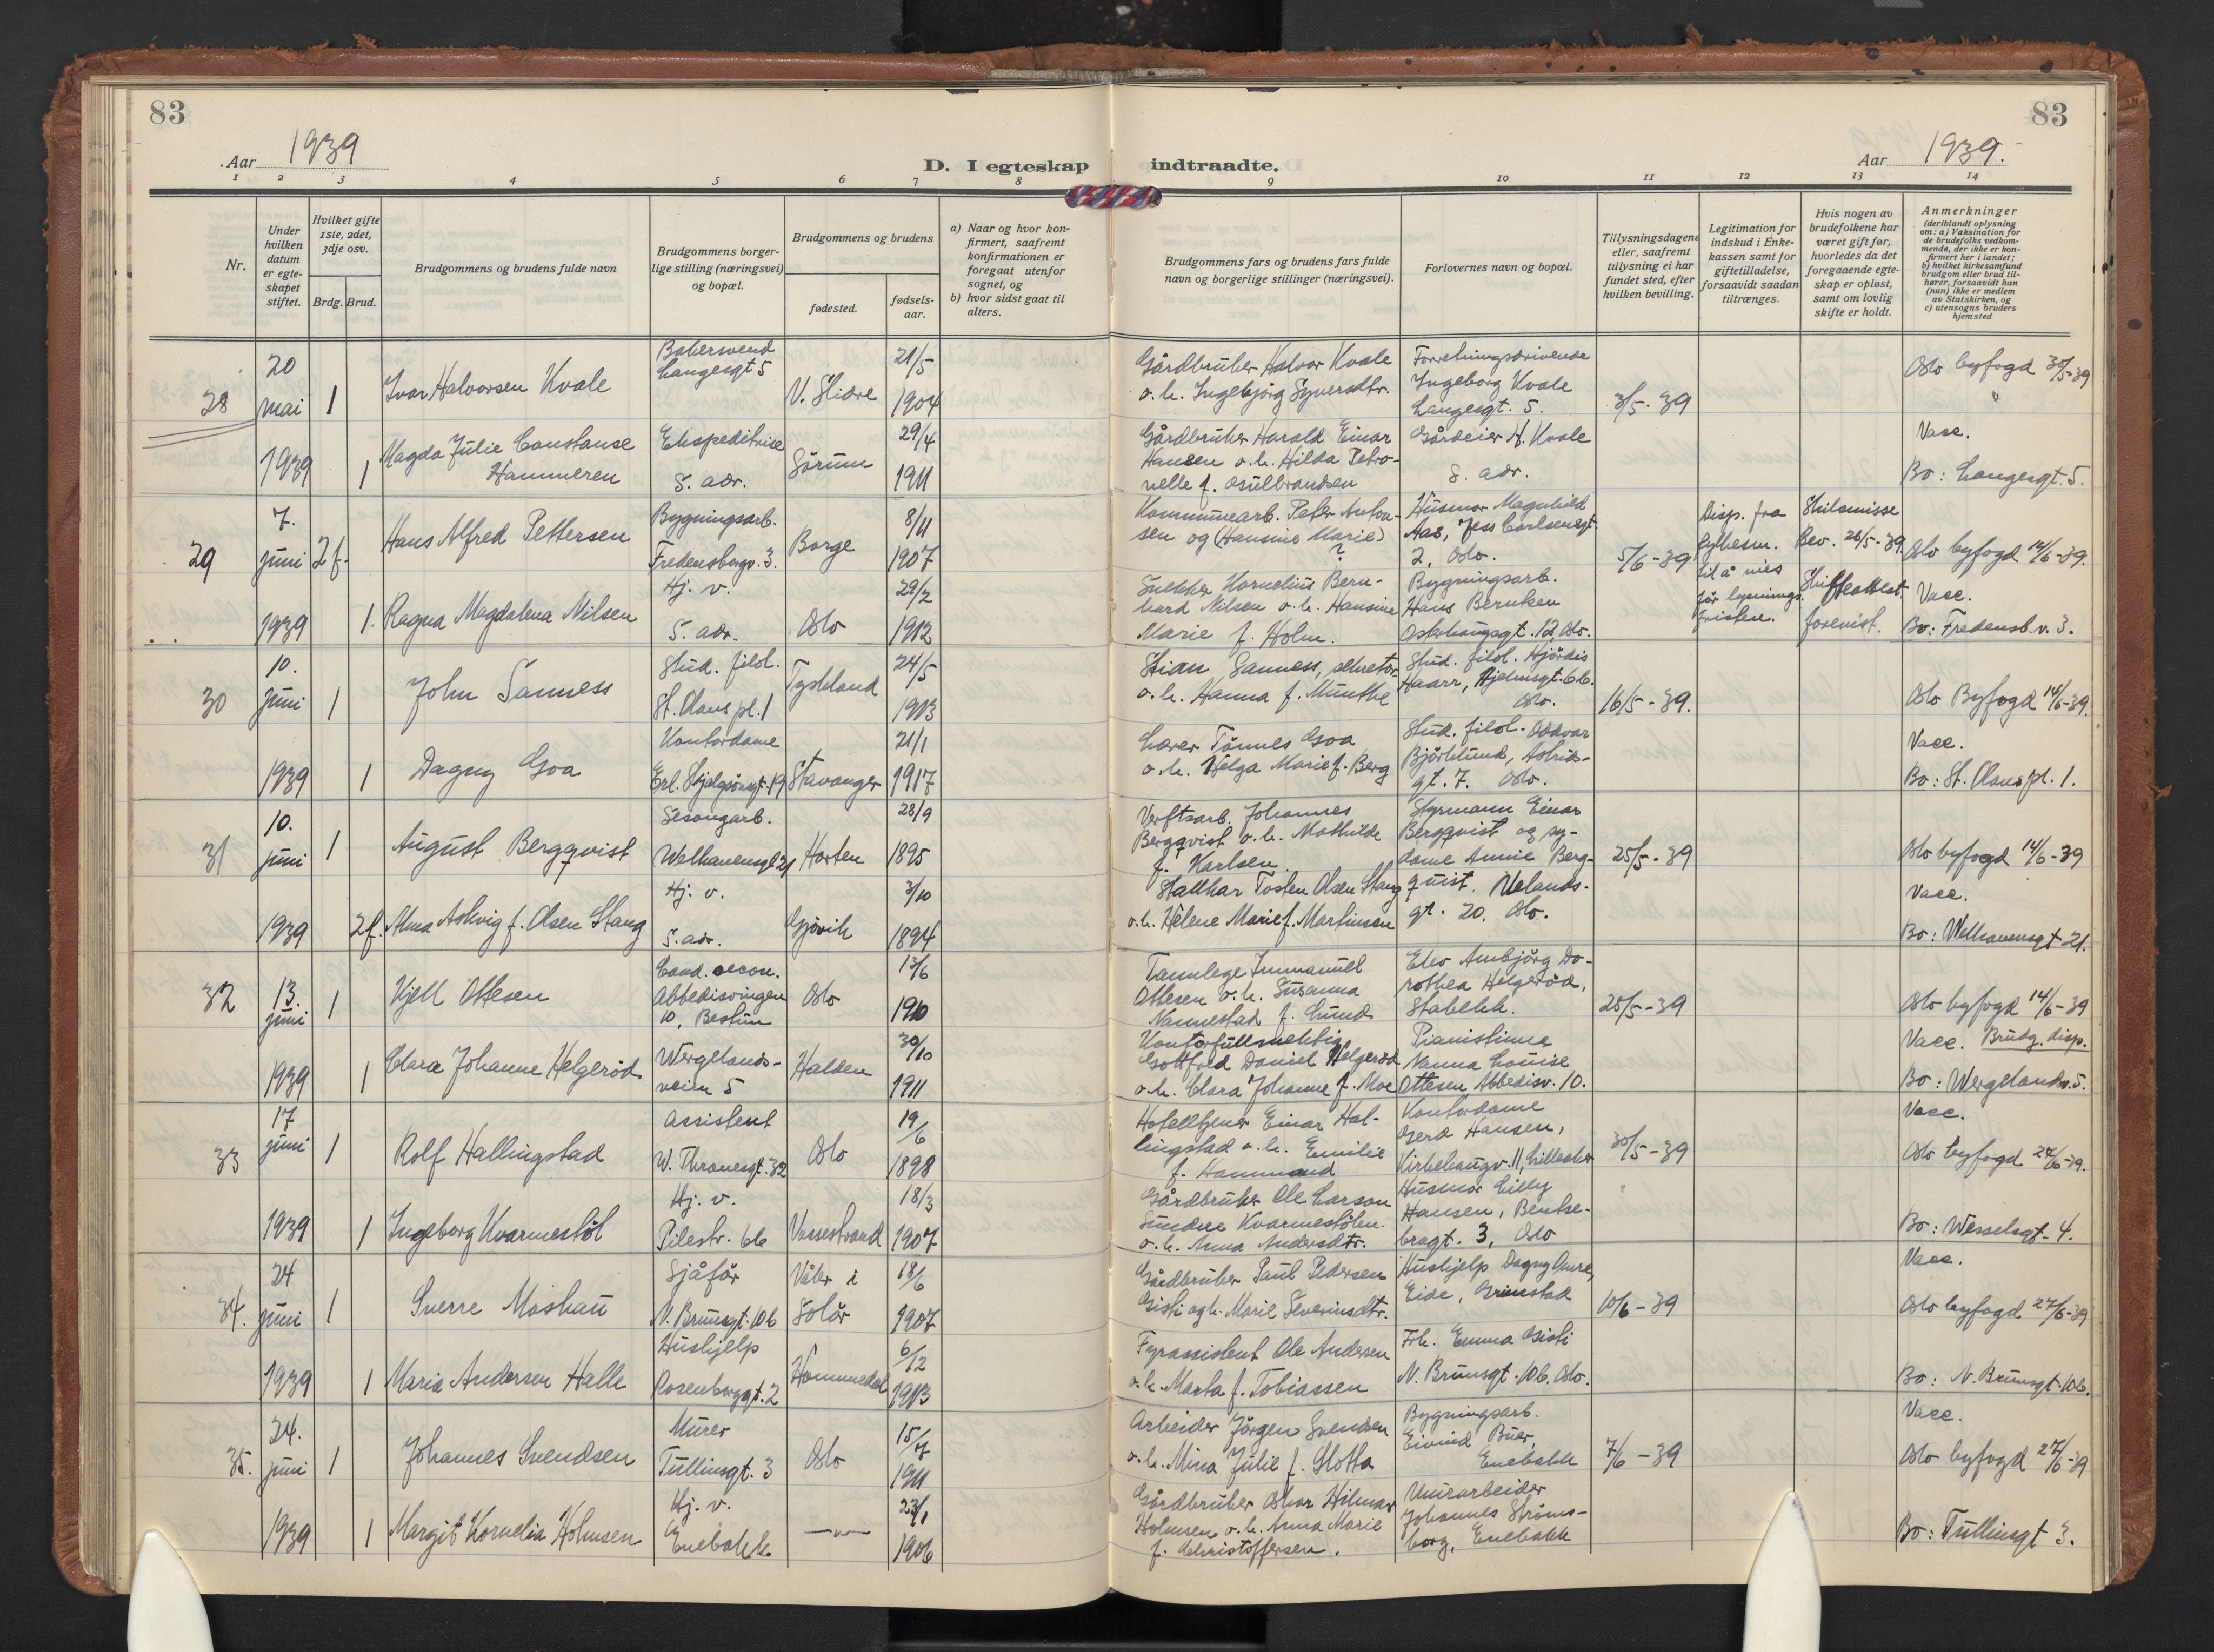 83
83
Aar 1939
D. I egteskap
indtraadte.
Aar 1939.
1 2 3 4 5 6 7 8 9 10 11 12 13 14
Nr.
Under hvilken datum er egteskapet stiftet.
Hvilket gifte 1ste, 2det, 3dje osv.
Brdg. Brud.
Brudgommens og brudens fulde navn
Brudgommens borgerlige stilling (næringsvei) og bopæl.
Brudgommens og brudens
fødested.
fødselsaar.
a) Naar og hvor konfirmert, saafremt konfirmationen er foregaat utenfor sognet, og
b) hvor sidst gaat til alters.
Brudgommens fars og brudens fars fulde navn og borgerlige stillinger (næringsvei).
Forlovernes navn og bopæl.
Tillysningsdagene eller, saafremt tillysning ei har fundet sted, efter hvilken bevilling.
Legitimation for indskud i Enkekassen samt for giftetilladelse, forsaavidt saadan tiltrænges.
Hvis nogen av brudefolkene har været gift før, hvorledes da det foregaaende egteskap er opløst, samt om lovlig skifte er holdt.
Anmerkninger
(deriblandt oplysning om: a) Vaksination for de brudefolks vedkommende, der ikke er konfirmert her i landet;
b) hvilket kirkesamfund brudgom eller brud tilhører, forsaavidt han (hun) ikke er medlem av Statskirken, og
c) utensogns bruders hjemsted
28
20 mai 1939
1
Ivar Halvorsen Kvale
Bakersvend
Langesgt 5
V. Slidre
21/5 1904
Gårdbruker Halvor Kvale
o. h. Ingebjørg Syversdtr.
Forretningsdrivende
Ingeborg Kvale
Langesgt. 5.
3/5-39
Oslo byfogd 30/5-39
1
Magda Julie Constanse
Hammeren
Ekspeditrise
S. adr.
Sørum
29/4 1911
Gårdbruker Harald Einar
Hansen o. h. Hilda Petronelle f. Asulbrandsen
Gårdeier H. Kvale
S. adr.
Vacc.
Bo: Langesgt. 5.
29
7. juni 1939
2 f.
Hans Alfred Pettersen
Bygningsarb.
Fredensborgv. 3.
Borge
8/11 1907
Kommunearb. Peter Antonsen og (Hansine Marie)
?
Husmor Magnhild
Aas, Jess Carlsensgt
2, Oslo.
5/6-39
Disp. fra
fylkesm.
til å vies
før lysnings
fristen.
Skilsmisse
Bev. 26/5-39
Skifteattest
forevist.
Oslo byfogd 14/6-39.
1.
Ragna Magdalena Nilsen
Hj. v.
S. adr.
Oslo
29/2 1912
Snekker Kornelius Bernhard Nilsen o. h. Hansine
Marie f. Holm.
Bygningsarb.
Hans Berntsen
Osterhausgt. 12, Oslo.
Vacc.
Bo: Fredensb. v. 3.
30
10. juni 1939
1
John Sanness
Stud. filol.
St. Olavs pl. 1
Tyskland
24/5 1913
Stian Sanness, sekretær
o. h. Hanna f. Munthe
Stud. filol. Hjördis
Haarr, Hjelmsgt. 6b.
Oslo.
16/5-39.
Oslo Byfogd 14/6-39.
1
Dagny Goa
Kontordame
Erl. Skjalgsönsgt. 19
Stavanger
21/1 1917
Lærer Tönnes Goa
o. h. Helga Marie f. Berg
Stud. filol. Oddvar
Björklund, Astridsgt. 7. Oslo.
Vacc.
Bo: St. Olavs pl. 1.
31
10. juni 1939
1
August Bergqvist
Sesongarb.
Welhavensgt 21
Horten
28/9 1895
Verftsarb. Johannes
Bergqvist o. h. Mathilde
f. Karlsen
Styrmann Einar
Bergqvist og sydame Annie Bergquist. Uelandsgt. 20. Oslo.
25/5-39
Oslo byfogd 14/6-39
2 f.
Alma Askvig f. Olsen Stang
Hj. v.
S. adr.
Gjövik
3/10 1894
Stallkar Tosten Olsen Stang
o. h. Helene Marie f. Martinsen
Vacc.
Bo: Welhavensgt 21.
32
13. juni 1939
1
Kjell Ottesen
Cand. oecon.
Abbedisvingen
10, Bestun
Oslo
13/6 1910
Tannlege Immanuel
Ottesen o. h. Susanna
Nannestad f. Lund
Elev Ambjörg Dorothea Helgeröd,
Stabekk.
25/5-39
Oslo byfogd 14/6-39
1
Clara Johanne Helgeröd
Wergelandsveien 5
Halden
30/10 1911
Kontorfullmektig
Gottfred Daniel Helgeröd
o. h. Clara Johanne f. Moe
Pianistinne
Nanna Louise
Ottesen Abbedisv. 10.
Vacc. Brudg. disp.
Bo: Wergelandsv. 5.
33
17 juni 1939
1
Rolf Hallingstad
Assistent
W. Thranesgt. 32
Oslo
19/6 1898
Hotelltjener Einar Hallingstad o. h. Emilie
f. Hammund
Kontordame
Gerd Hansen,
Kirkehaugv. 11, Lilleaker
30/5-39
Vacc.
Oslo byfogd 24/6-39.
1
Ingeborg Kvarmestöl
Hj. v.
Pilestr. 6b
Vossestrand
18/3 1907
Gårdbruker Ole Larson
Sundve Kvarmestölen.
o. h. Anna Andersdtr.
Husmor Lilly
Hansen, Bentsebrogt. 3, Oslo
Bo: Wesselsgt. 4.
34.
24 juni 1939
1
Sverre Moshau
Sjåför
N. Brunsgt. 10b
Våler i
Solör
18/6 1907
Gårdbruker Paul Pedersen
Gisti og h. Marie Severinsdtr.
Hushjelp Dagny Aure,
Eide, Grimstad
10/6-39
Vacc.
Oslo byfogd 27/6-39
1
Maria Andersen Halle
Hushjelp
Rosenborggt. 2
Hommedal
6/12 1913
Fyrassistent Ole Andersen
o. h. Marta f. Tobiassen
Frk. Emma Gisti
N. Brunsgt. 10b. Oslo.
Bo: N. Brunsgt. 10b.
35.
24. juni 1939
1
Johannes Svendsen
Murer
Tullinsgt. 3
Oslo
15/7 1911
Arbeider Jörgen Svendsen
o. h. Mina Julie f. Slotta
Bygningsarb.
Eivind Buer,
Enebakk
7/6-39
Vacc.
Oslo byfogd 27/6-39
1
Margit Kornelia Holmsen
Hj. v.
Enebakk
—"—
23/1 1906
Gårdbruker Oskar Hilmar
Holmsen o. h. Anna Marie
f. Christoffersen.
Murarbeider
Johannes Strömsborg, Enebakk
Bo: Tullinsgt 3.